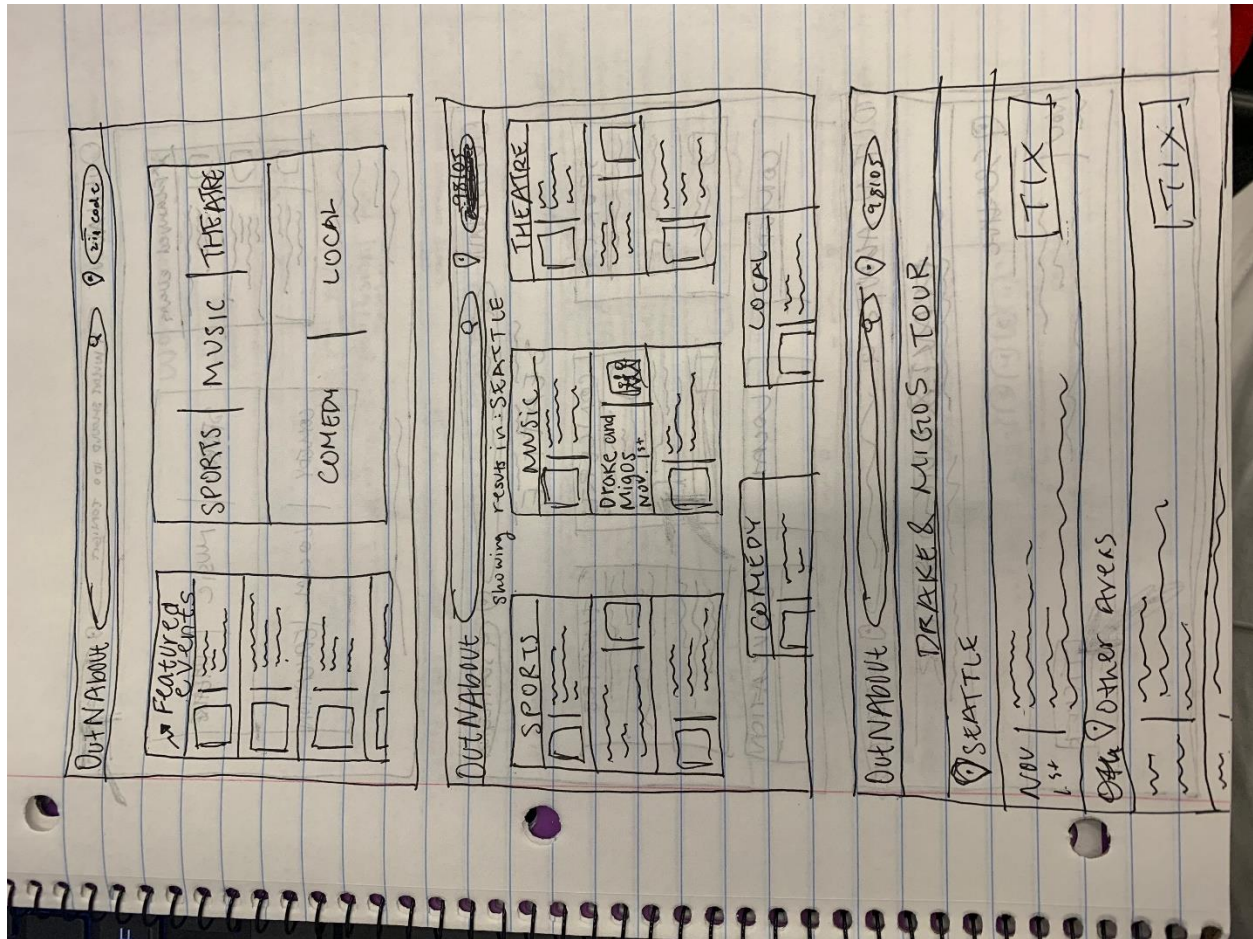 OutNAbout
zip code
Featured
events
SPORTS | MUSIC | THEATRE
COMEDY | LOCAL
OutNAbout
98105
showing results in: SEATTLE
SPORTS
MUSIC
Drake and
Migos
Nov. 1st
THEATRE
COMEDY
LOCAL
OutNAbout
98105
DRAKE & MIGOS TOUR
SEATTLE
NOV
1st
TIX
Other Areas
TIX